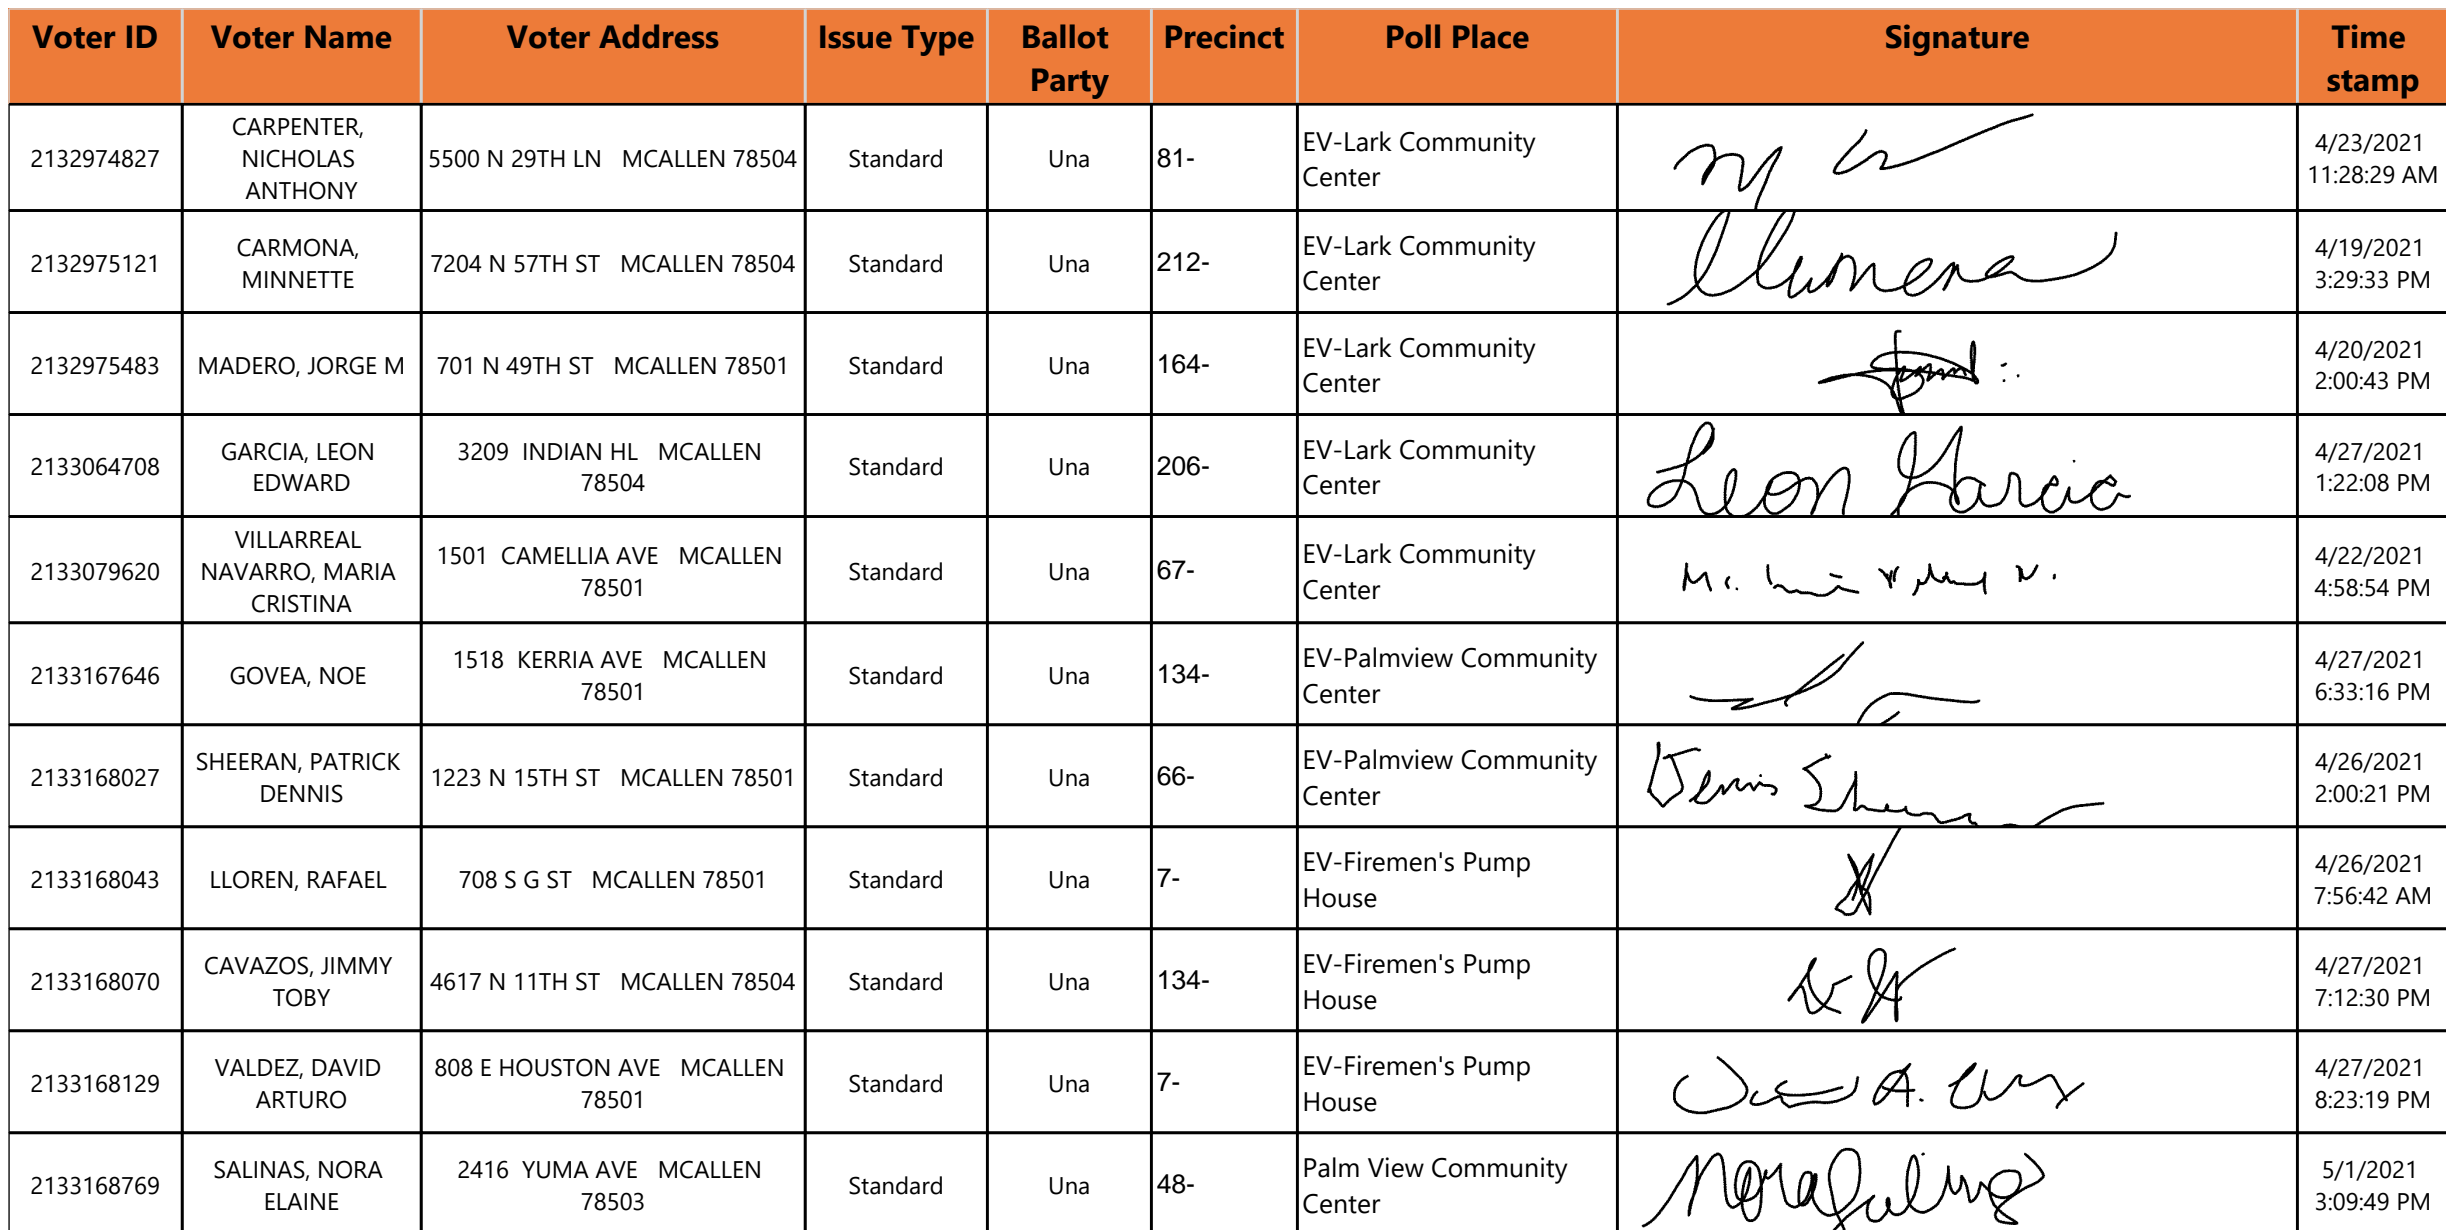 Voter ID Voter Name Voter Address Issue Type Ballot Party Precinct Poll Place Signature Time stamp
2132974827 CARPENTER, NICHOLAS ANTHONY 5500 N 29TH LN MCALLEN 78504 Standard Una 81- EV-Lark Community Center 4/23/2021 11:28:29 AM
2132975121 CARMONA, MINNETTE 7204 N 57TH ST MCALLEN 78504 Standard Una 212- EV-Lark Community Center 4/19/2021 3:29:33 PM
2132975483 MADERO, JORGE M 701 N 49TH ST MCALLEN 78501 Standard Una 164- EV-Lark Community Center 4/20/2021 2:00:43 PM
2133064708 GARCIA, LEON EDWARD 3209 INDIAN HL MCALLEN 78504 Standard Una 206- EV-Lark Community Center Leon Garcia 4/27/2021 1:22:08 PM
2133079620 VILLARREAL NAVARRO, MARIA CRISTINA 1501 CAMELLIA AVE MCALLEN 78501 Standard Una 67- EV-Lark Community Center 4/22/2021 4:58:54 PM
2133167646 GOVEA, NOE 1518 KERRIA AVE MCALLEN 78501 Standard Una 134- EV-Palmview Community Center 4/27/2021 6:33:16 PM
2133168027 SHEERAN, PATRICK DENNIS 1223 N 15TH ST MCALLEN 78501 Standard Una 66- EV-Palmview Community Center Dennis 4/26/2021 2:00:21 PM
2133168043 LLOREN, RAFAEL 708 S G ST MCALLEN 78501 Standard Una 7- EV-Firemen's Pump House 4/26/2021 7:56:42 AM
2133168070 CAVAZOS, JIMMY TOBY 4617 N 11TH ST MCALLEN 78504 Standard Una 134- EV-Firemen's Pump House 4/27/2021 7:12:30 PM
2133168129 VALDEZ, DAVID ARTURO 808 E HOUSTON AVE MCALLEN 78501 Standard Una 7- EV-Firemen's Pump House 4/27/2021 8:23:19 PM
2133168769 SALINAS, NORA ELAINE 2416 YUMA AVE MCALLEN 78503 Standard Una 48- Palm View Community Center Nora Salinas 5/1/2021 3:09:49 PM